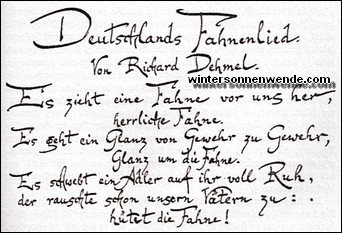 Deutschlands Fahnenlied.
Von Richard Dehmel.
wintersonnenwende.com
Es zieht eine Fahne vor uns her,
herrliche Fahne.
Es geht ein Glanz von Gewehr zu Gewehr,
Glanz um die Fahne.
Es schwebt ein Adler auf ihr voll Ruh,
der rauschte schon unsern Vätern zu: . .
hütet die Fahne!